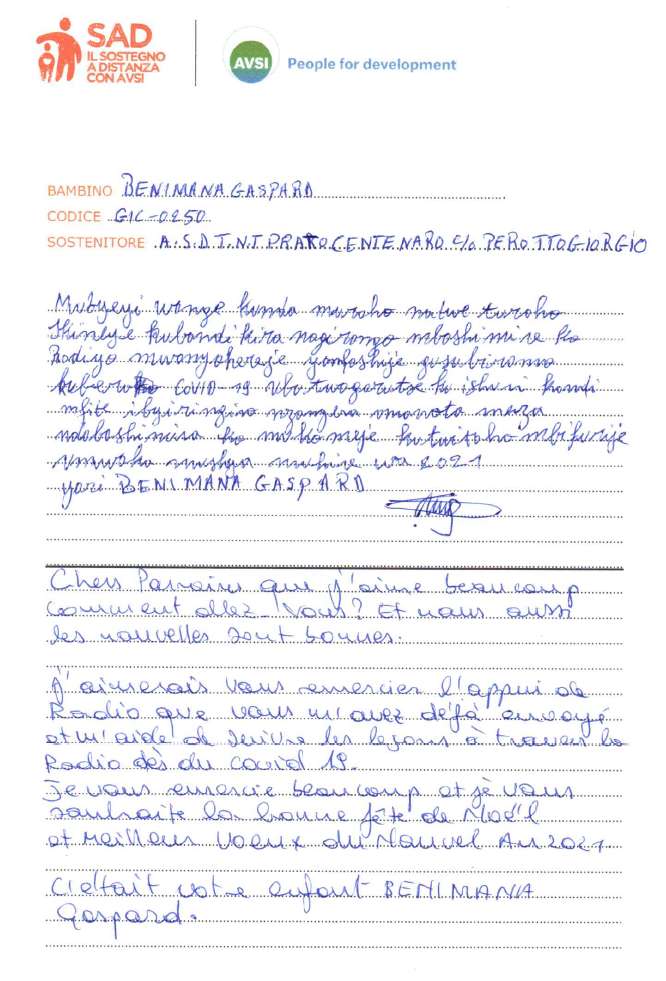 SAD
IL SOSTEGNO
A DISTANZA
CON AVSI
AVSI People for development
BAMBINO BENIMANA GASPARD
CODICE GIC-0250
SOSTENITORE A.S.D T.N.T PRATO CENTENARO c/o PEROTTO GIORGIO
Mubyeyi wange kunda muraho natwe turaho
kubandikira mboshimire ko
Radiyo mwanyohereje yamfashije gusubiramo
kubera COVID-19 ubu twagarutse ku ishuri kandi
mfite ibyiringiro nzongera amanota meza
ndabashimira ko mukomeje kutwitaho mbifurije
umwaka mushya muhire wa 2021
yari BENIMANA GASPARD
Chers Parrains que j'aime beaucoup
comment allez-Vous? Et nous aussi
les nouvelles sont bonnes.
J'aimerais vous remercier l'appui de
Radio que vous m'avez déjà envoyé
et m'aide de suivre les leçons à travers la
Radio dès du covid 19.
Je vous remercie beaucoup et je vous
souhaite la bonne fête de Noël
et Meilleur Voeux du Nouvel An 2021
C'était votre enfant BENIMANA
Gaspard.